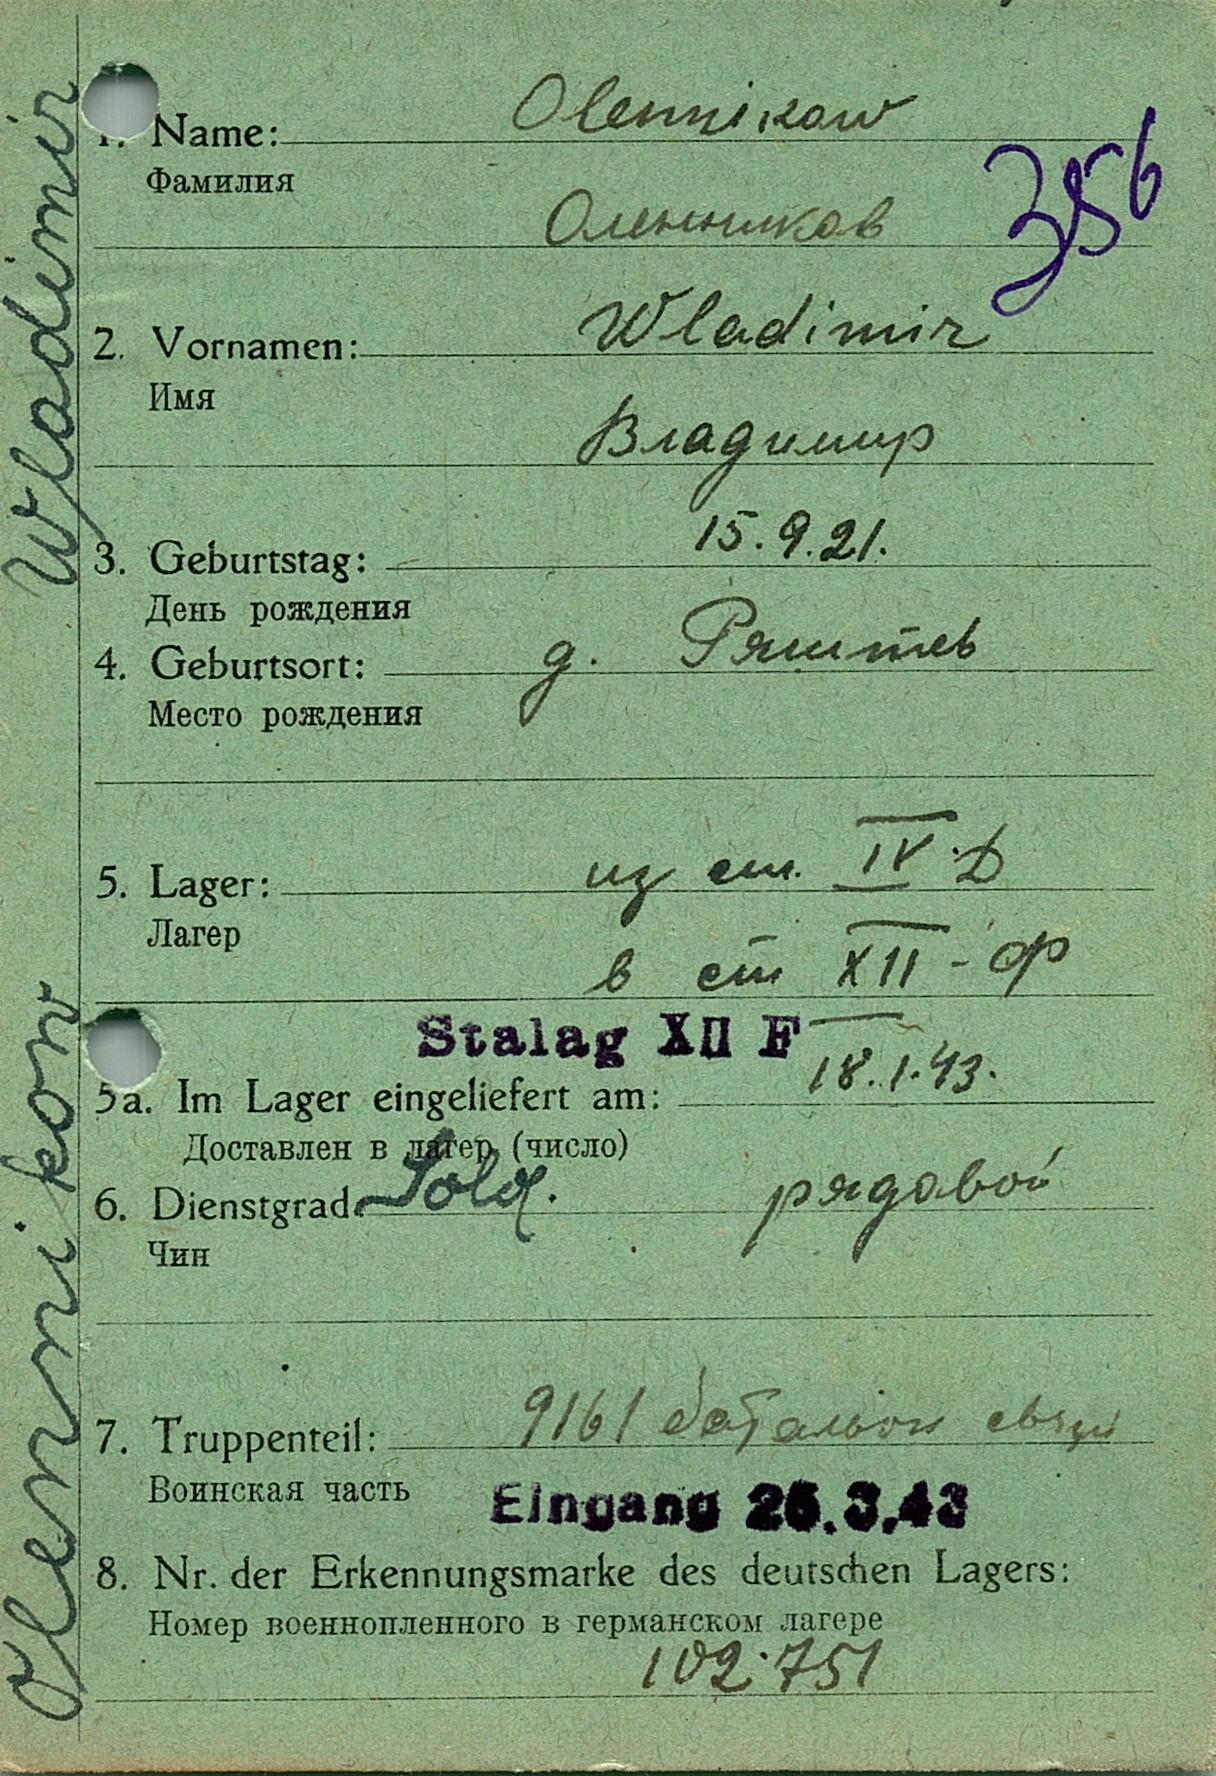 Olennikow Wladimir
1. Name: Olennikow
Фамилия
Оленников
356
2. Vornamen: Wladimir
Имя
Владимир
3. Geburtstag: 15.9.21.
День рождения
4. Geburtsort: д.
Место рождения
5. Lager: из ст. IV.D
Лагер
в ст XII - Ф
Stalag XII F
5a. Im Lager eingeliefert am: 18.1.43.
Доставлен в лагер (число)
6. Dienstgrad: Sold. рядовой
Чин
7. Truppenteil: 9161 батальон связи
Воинская часть
Eingang 26.3.43
8. Nr. der Erkennungsmarke des deutschen Lagers:
Номер военнопленного в германском лагере
102751